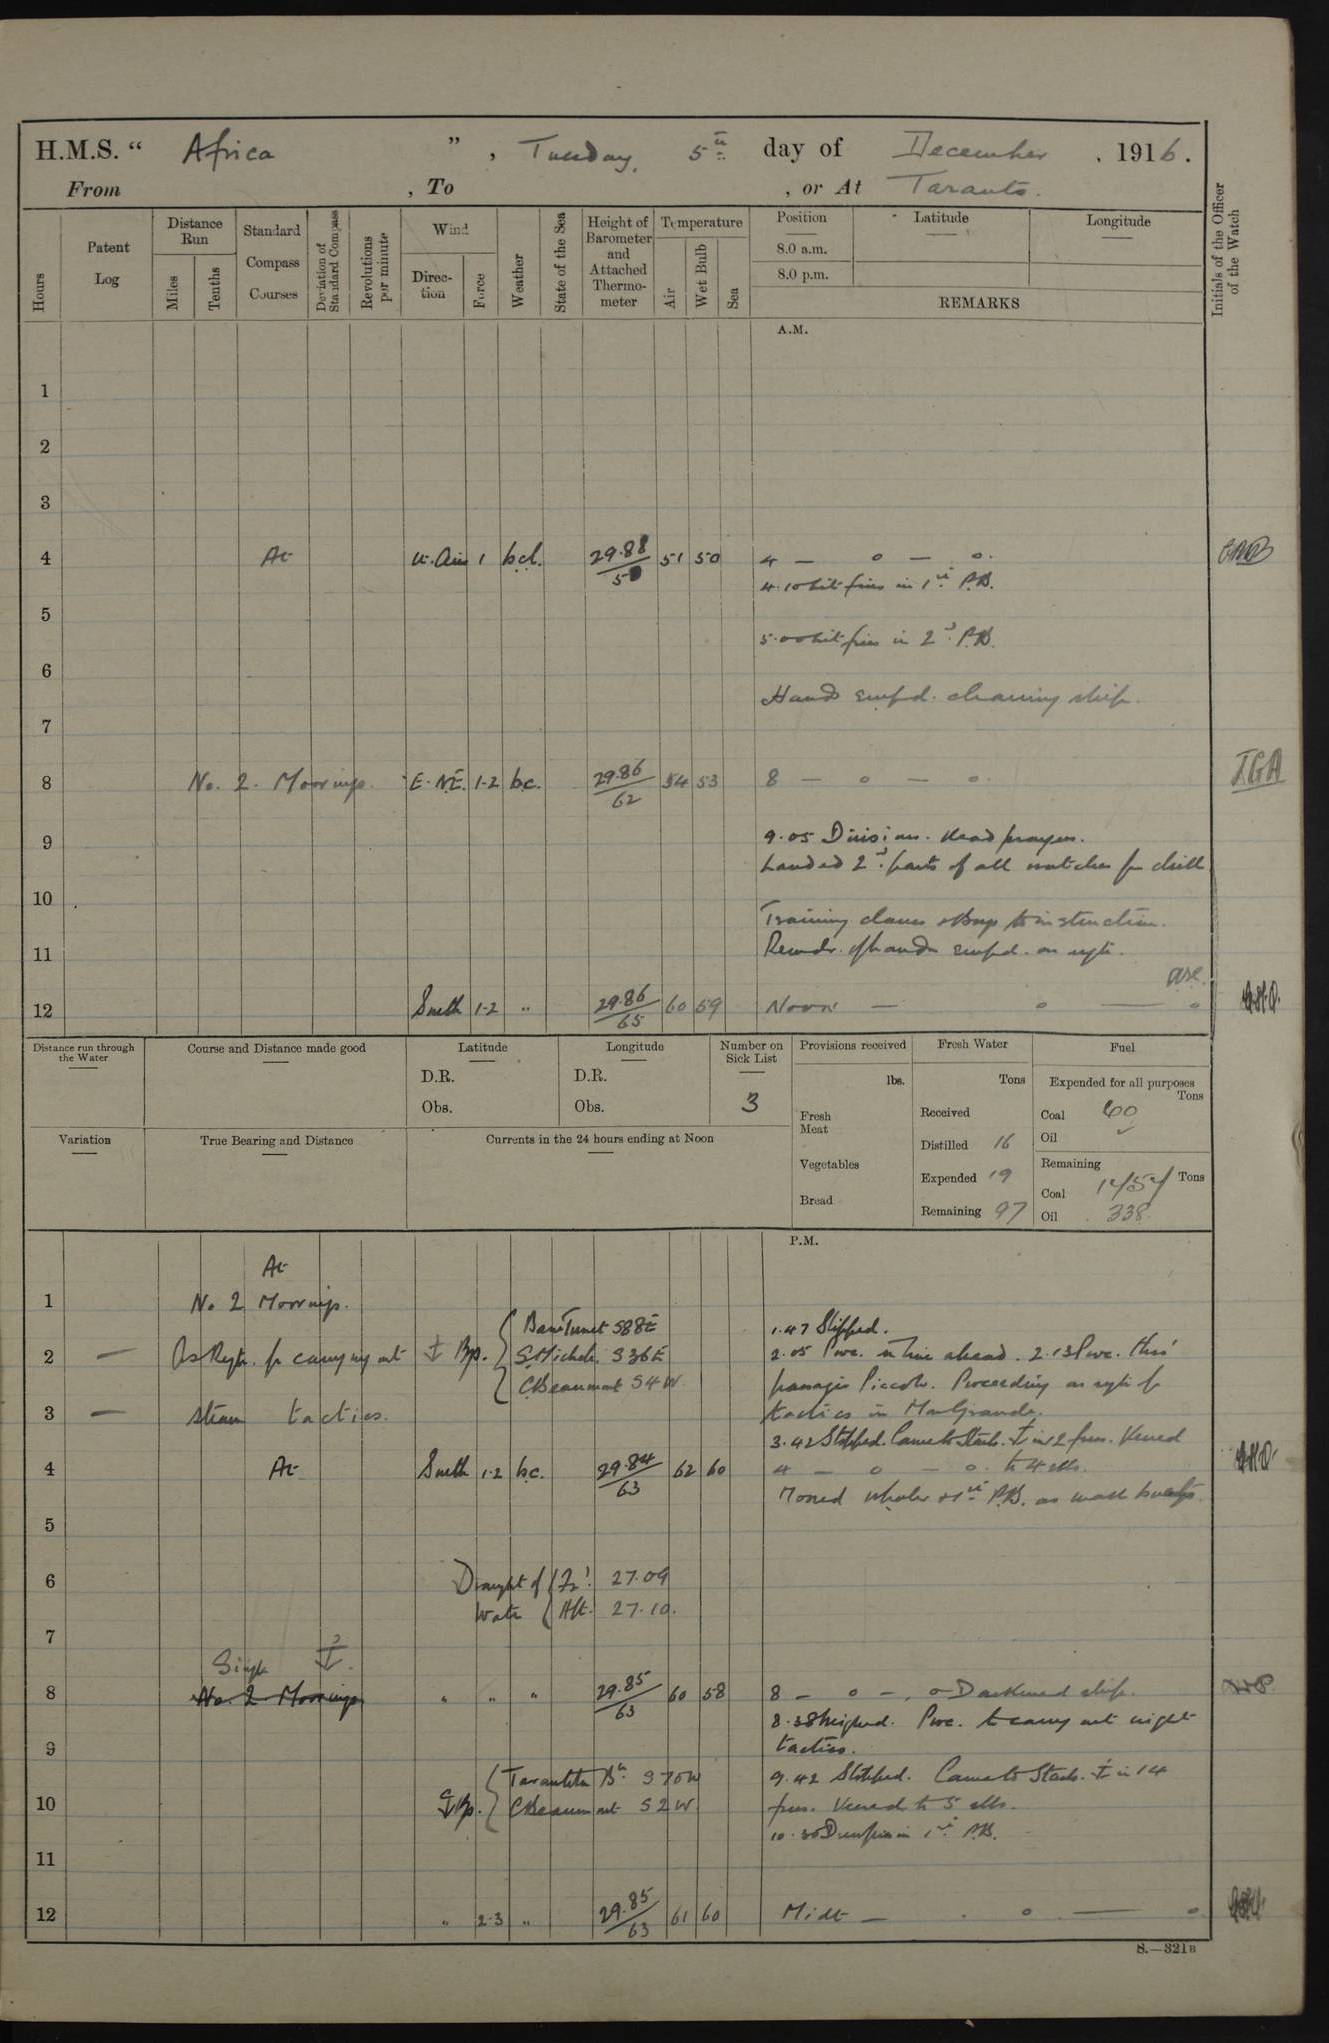 H.M.S. “ Africa ” , Tuesday, 5th day of December , 1916.
From , To , or At Taranto.
Hours
Patent Log
Distance Run
Miles
Tenths
Standard Compass Courses
Deviation of Standard Compass
Revolutions per minute
Wind
Direction
Force
Weather
State of the Sea
Height of Barometer and Attached Thermometer
Temperature
Air
Wet Bulb
Sea
Position
Latitude
Longitude
8.0 a.m.
8.0 p.m.
REMARKS
Initials of the Officer of the Watch
A.M.
1
2
3
4 At Lt. Airs 1 b.c. 29.88 51 50 4 — o — o.
4.10 Lit fires in 1st P.B.
5
5.00 Lit fires in 2d P.B.
6
Hands empd. cleaning ship.
7
8 No. 2. Moorings. E.N.E. 1-2 b.c. 29.86/62 54 53 8 — o — o. J.G.A
9 9.05 Divisions. Read prayers.
Landed 2d parts of all watches for drill
10
Training classes & Boys to instruction.
11 Remdr. of hands empd. as reqte.
12 South 1-2 „ 29.86/65 60 59 Noon — o — o
Distance run through the Water
Course and Distance made good
Latitude
D.R.
Obs.
Longitude
D.R.
Obs.
Number on Sick List
3
Provisions received
lbs.
Fresh Meat
Vegetables
Bread
Fresh Water
Tons
Received
Distilled 16
Expended 19
Remaining 97
Fuel
Expended for all purposes
Tons
Coal 60
Oil ✓
Remaining
Tons
Coal 1454
Oil 338.
Variation
True Bearing and Distance
Currents in the 24 hours ending at Noon
P.M.
At
1 No 2 Moorings.
1.47 Slipped.
2 — As Reqte. for carrying out Bgs. S88E S36E C.Beaumont S4W
2.05 Proc. in line ahead. 2.13 Proc. thro'
passage Piccolo. Proceeding as reqte for
3 — steam tactics.
tactics in Mar Grande.
3.42 Stopped. Came to Starb. in 12 fms. Veered
4 At South 1-2 b.c. 29.84/63 62 60 4 — o — o. to 4 shs.
Moored whaler & 1st P.B. as
5
6 Draught of Water { Fd. 27.09
Aft. 27.10.
7
Single
8 No. 2 Moorings „ „ „ 29.85/63 60 58 8 — o —, o Darkened ship.
8.38 Weighed. Proc. to carry out night
9 tactics.
9.42 Stopped. Came to Starb. in 14
10 Bgs. { S70W
C.Beaumont S2W
fms. Veered to 5 shs.
10.30 Drew fires in 1st P.B.
11
12 „ 2-3 „ 29.85/63 61 60 Midt — o — o
S.—321B